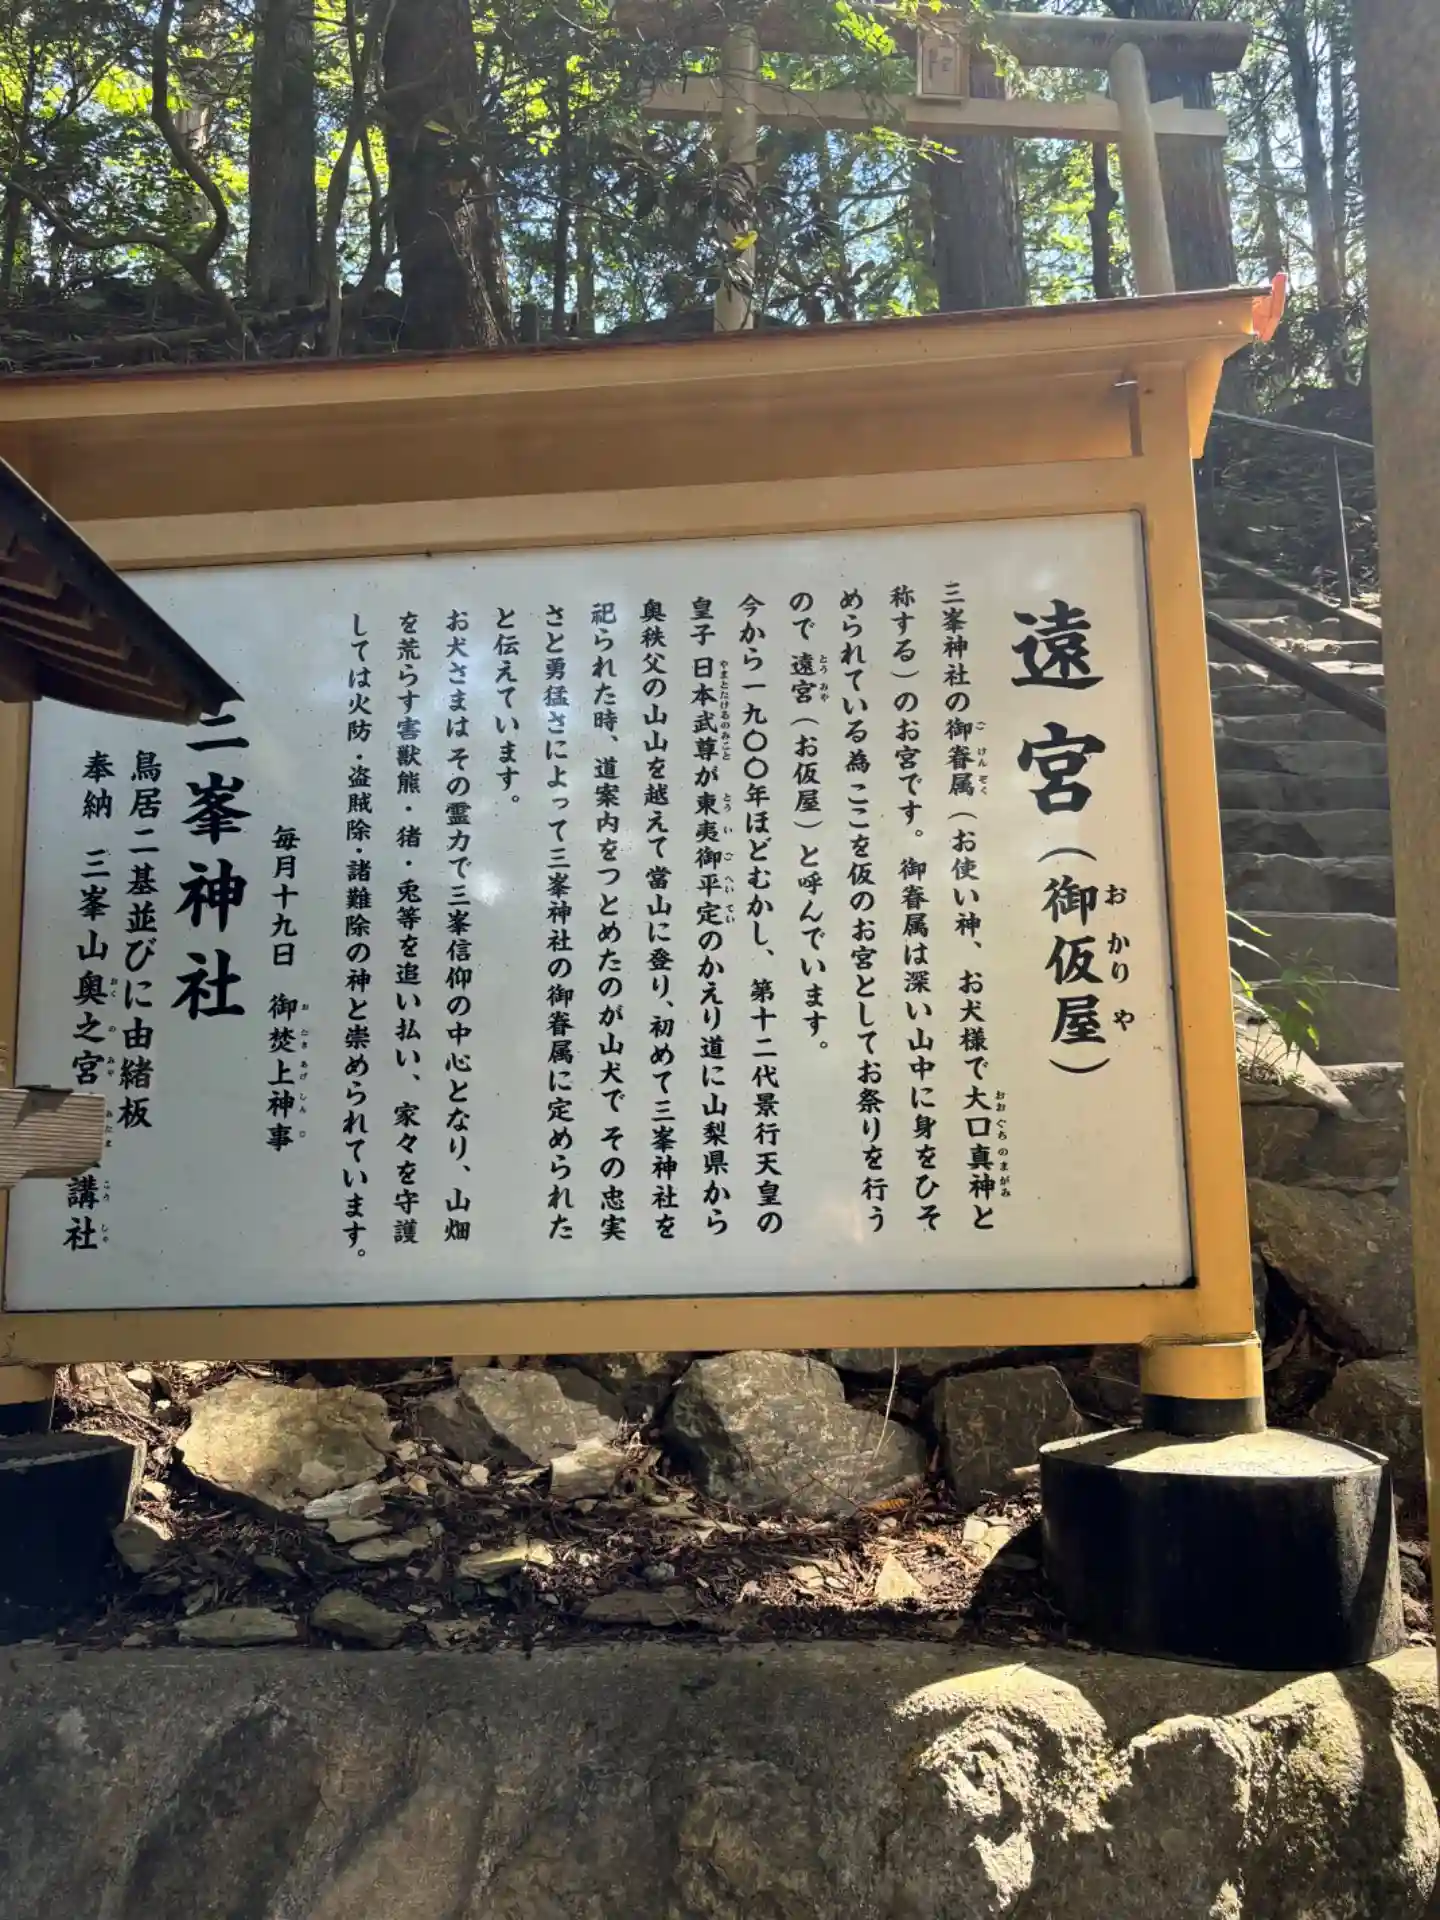 遠宮（御仮屋）
おかりや
三峯神社の御眷属（お使い神、お犬様で大口真神と
ごけんぞく
おおぐちのまがみ
称する）のお宮です。御眷属は深い山中に身をひそ
められている為ここを仮のお宮としてお祭りを行う
ので遠宮（お仮屋）と呼んでいます。
とうみや
今から一九〇〇年ほどむかし、第十二代景行天皇の
皇子日本武尊が東夷御平定のかえり道に山梨県から
やまとたけるのみこと
とういごへいてい
奥秩父の山山を越えて當山に登り、初めて三峯神社を
祀られた時、道案内をつとめたのが山犬でその忠実
さと勇猛さによって三峯神社の御眷属に定められた
と伝えています。
お犬さまはその霊力で三峯信仰の中心となり、山畑
を荒らす害獣熊・猪・兎等を追い払い、家々を守護
しては火防・盗賊除・諸難除の神と崇められています。
毎月十九日 御焚上神事
おたきあげしんじ
三峯神社
鳥居二基並びに由緒板
奉納 三峯山奥之宮 講社
おくのみや
みたま
こうしゃ